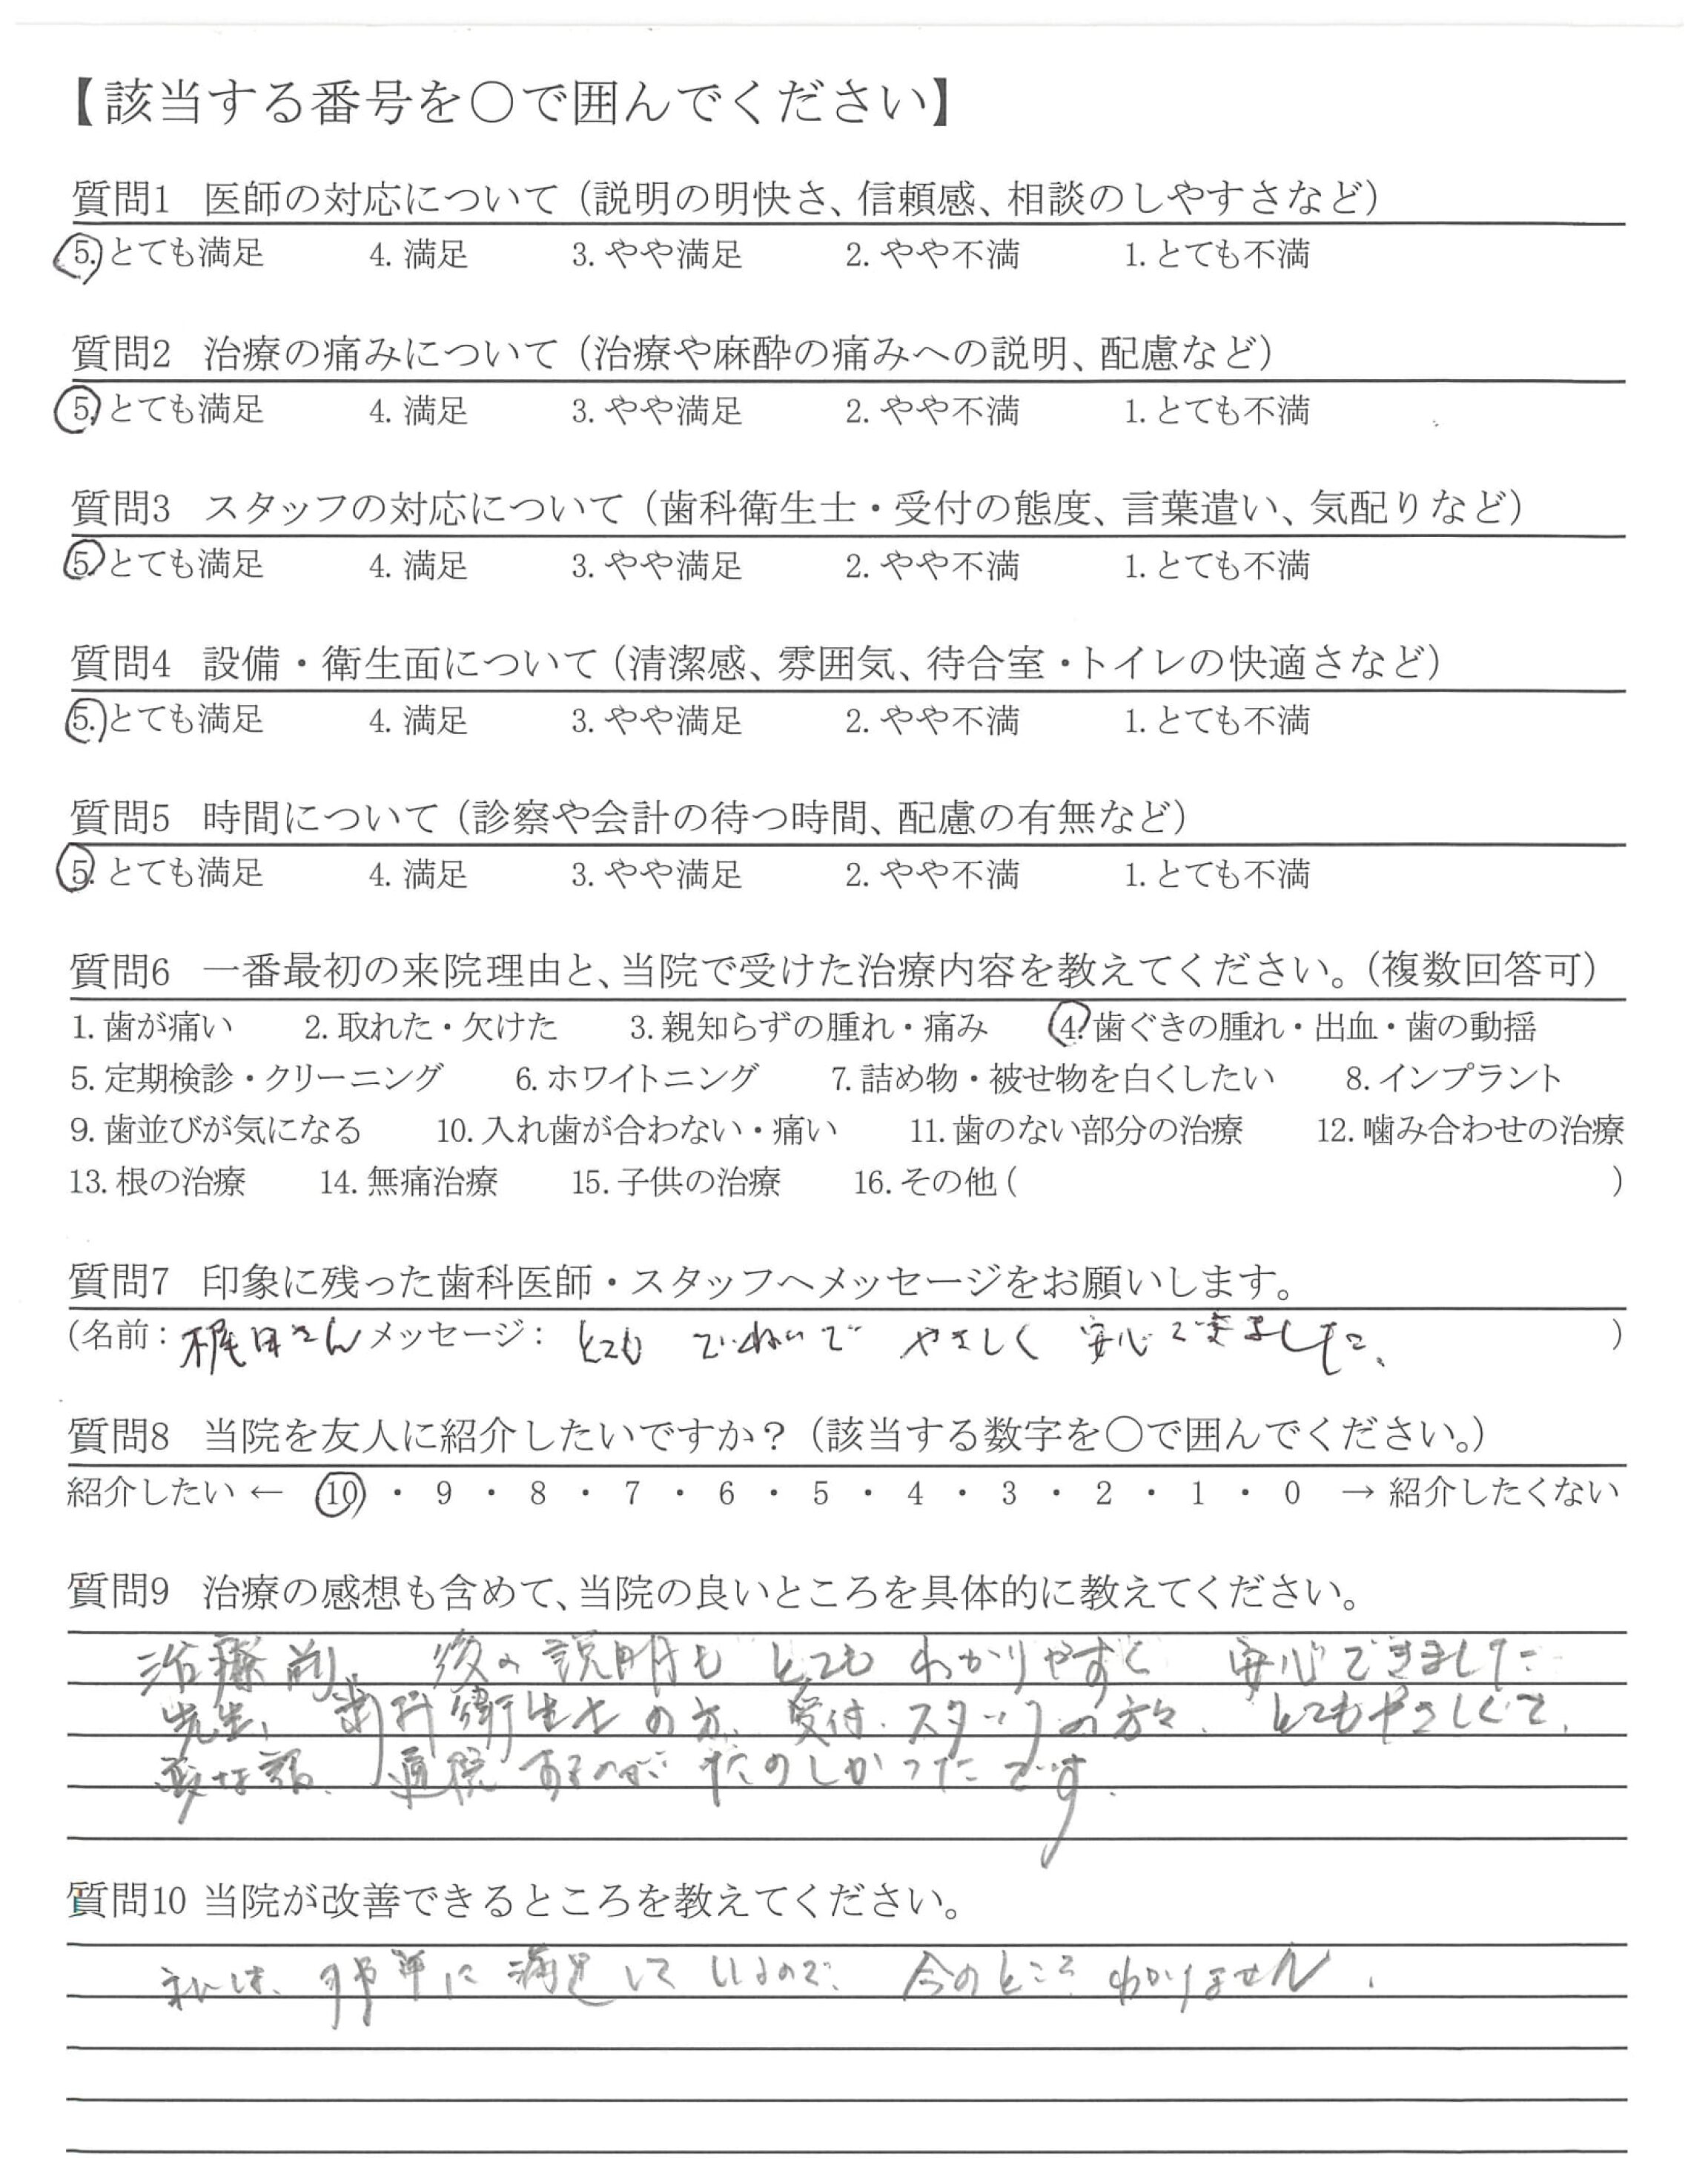 【該当する番号を○で囲んでください】
質問1 医師の対応について（説明の明快さ、信頼感、相談のしやすさなど）
5. とても満足 4. 満足 3. やや満足 2. やや不満 1. とても不満
質問2 治療の痛みについて（治療や麻酔の痛みへの説明、配慮など）
5. とても満足 4. 満足 3. やや満足 2. やや不満 1. とても不満
質問3 スタッフの対応について（歯科衛生士・受付の態度、言葉遣い、気配りなど）
5. とても満足 4. 満足 3. やや満足 2. やや不満 1. とても不満
質問4 設備・衛生面について（清潔感、雰囲気、待合室・トイレの快適さなど）
5. とても満足 4. 満足 3. やや満足 2. やや不満 1. とても不満
質問5 時間について（診察や会計の待つ時間、配慮の有無など）
5. とても満足 4. 満足 3. やや満足 2. やや不満 1. とても不満
質問6 一番最初の来院理由と、当院で受けた治療内容を教えてください。（複数回答可）
1. 歯が痛い 2. 取れた・欠けた 3. 親知らずの腫れ・痛み 4. 歯ぐきの腫れ・出血・歯の動揺
5. 定期検診・クリーニング 6. ホワイトニング 7. 詰め物・被せ物を白くしたい 8. インプラント
9. 歯並びが気になる 10. 入れ歯が合わない・痛い 11. 歯のない部分の治療 12. 噛み合わせの治療
13. 根の治療 14. 無痛治療 15. 子供の治療 16. その他（ ）
質問7 印象に残った歯科医師・スタッフへメッセージをお願いします。
（名前：梶田さん メッセージ： とても ていねいで やさしく 安心できました。 ）
質問8 当院を友人に紹介したいですか？（該当する数字を○で囲んでください。）
紹介したい ← 10 ・ 9 ・ 8 ・ 7 ・ 6 ・ 5 ・ 4 ・ 3 ・ 2 ・ 1 ・ 0 → 紹介したくない
質問9 治療の感想も含めて、当院の良いところを具体的に教えてください。
治療前、後の説明も とても わかりやすく 安心できました
先生、歯科衛生士の方、受付、スタッフの方々、とてもやさしくて、
通院するのが たのしかったです。
質問10 当院が改善できるところを教えてください。
私は、非常に満足しているので、今のところ わかりません。